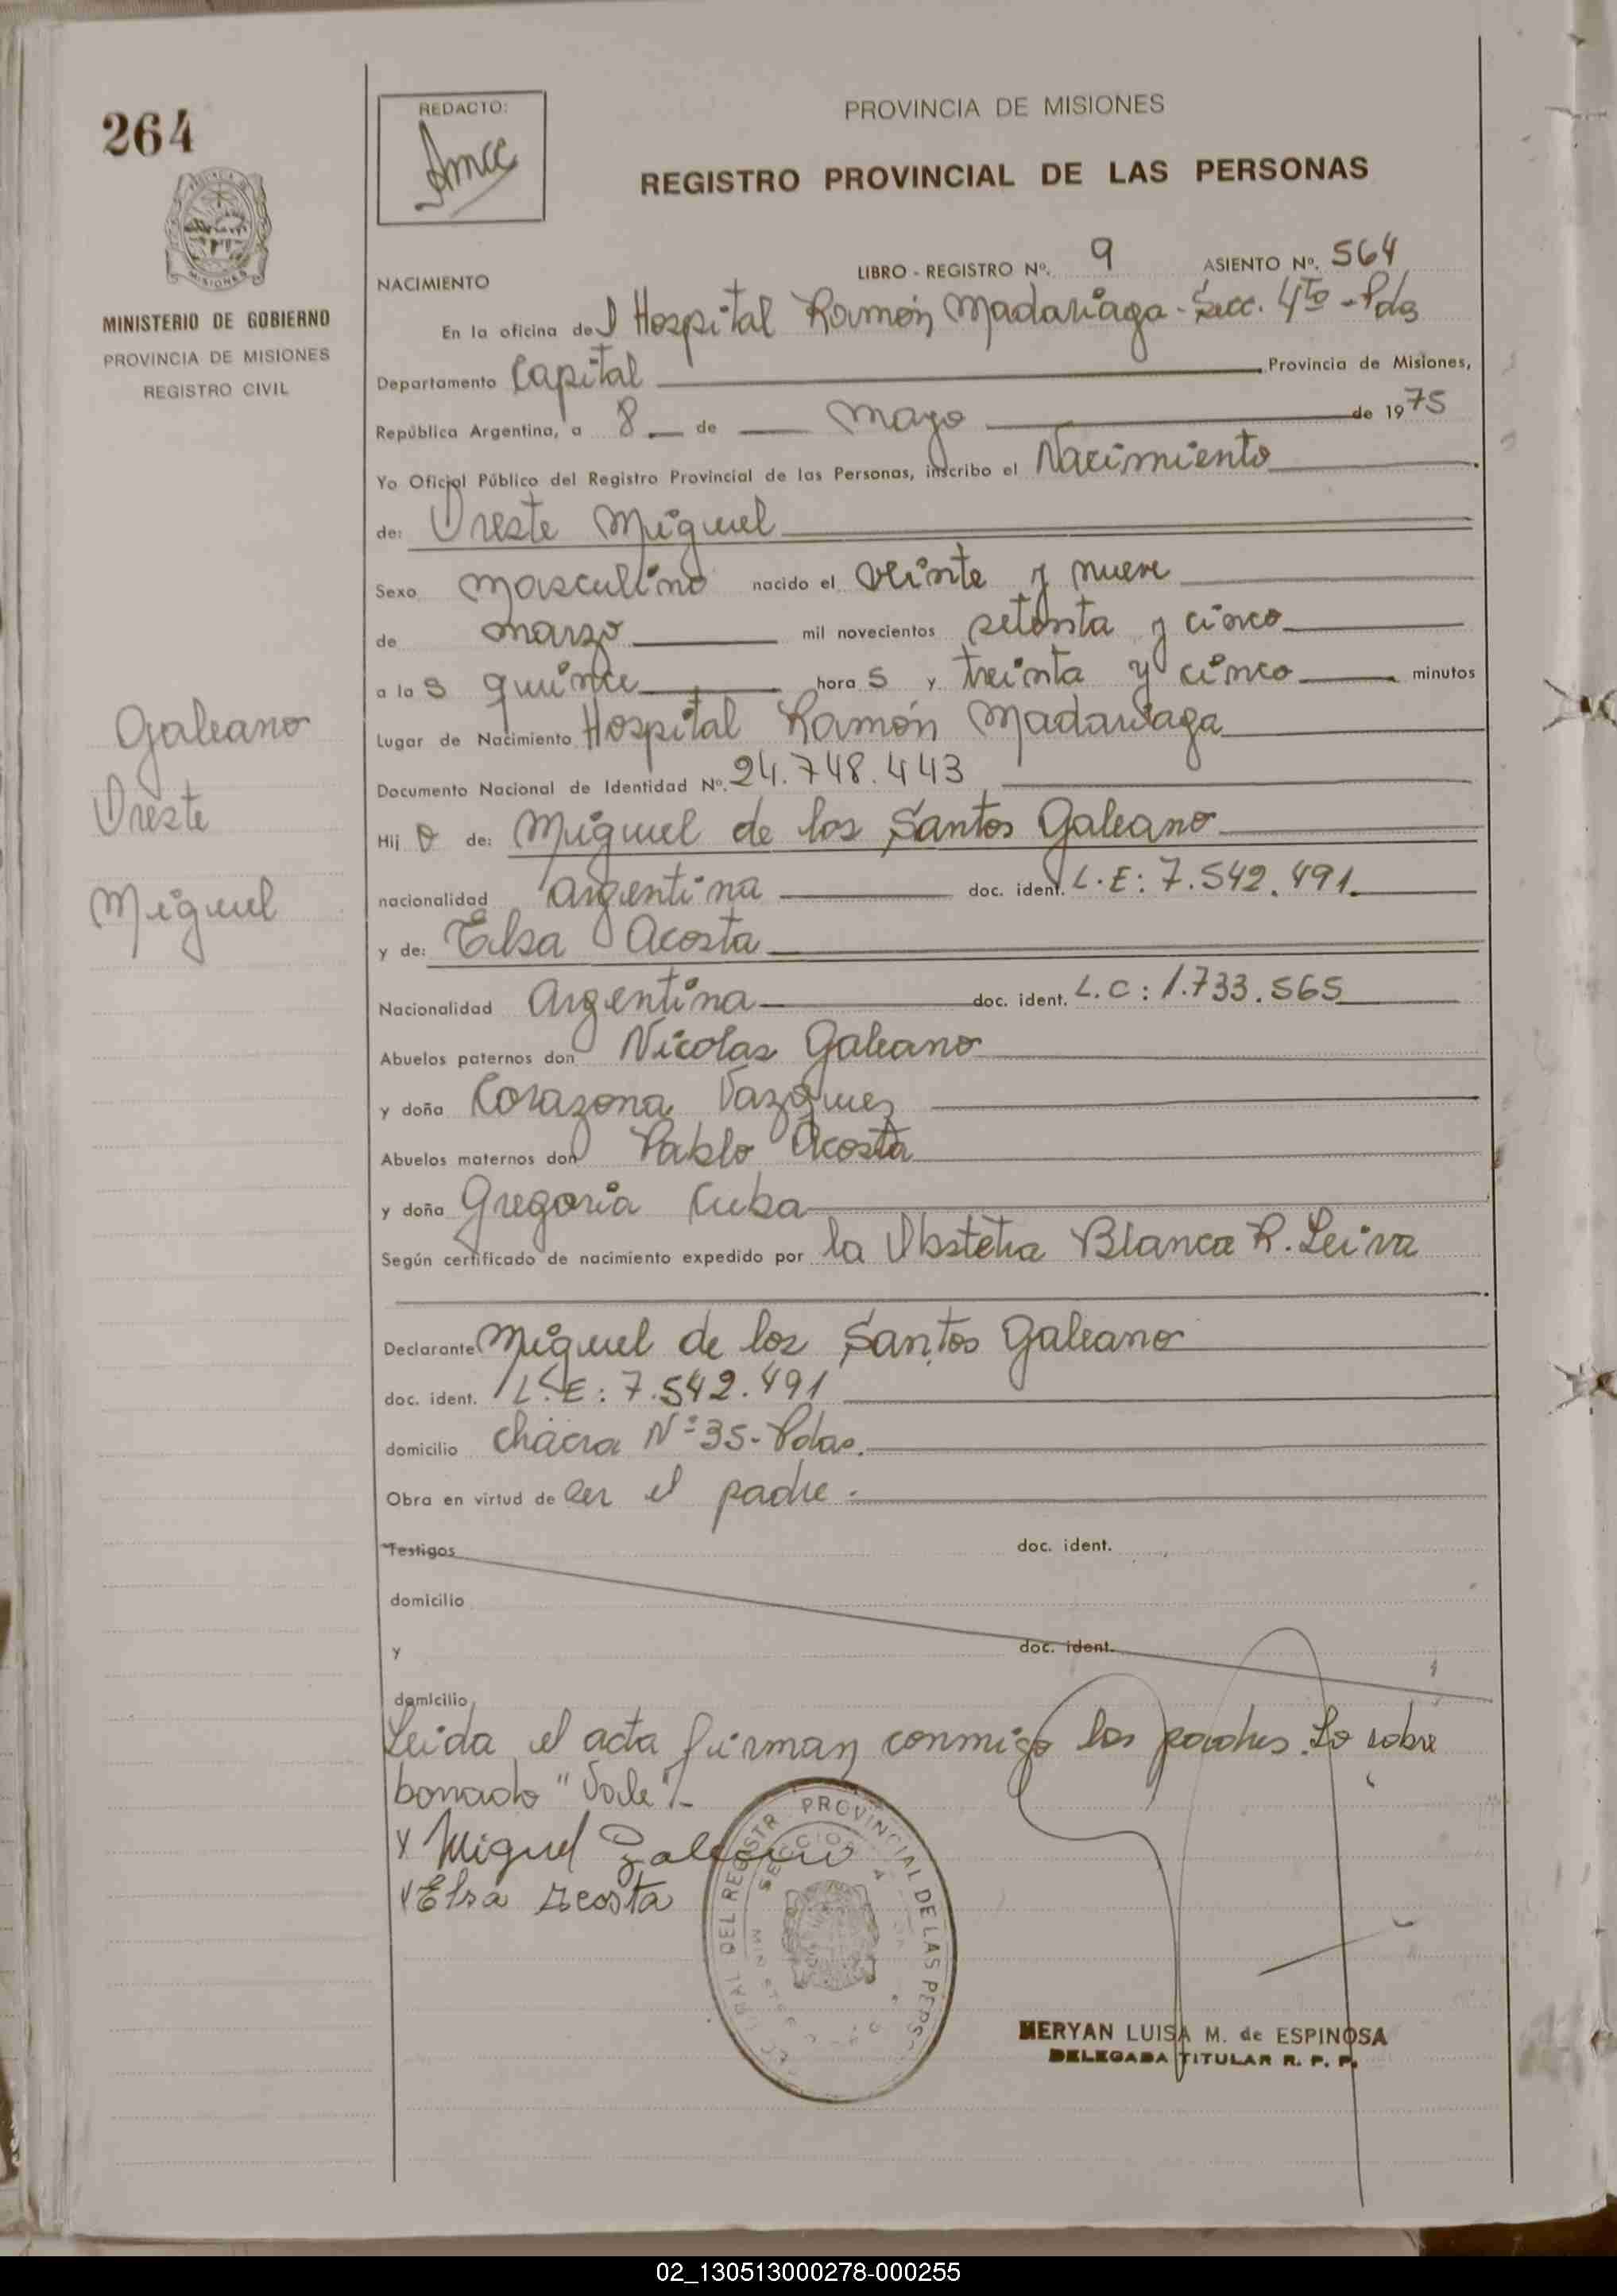 264
REDACTO:
PROVINCIA DE MISIONES
REGISTRO PROVINCIAL DE LAS PERSONAS
MISIONES
MINISTERIO DE GOBIERNO
PROVINCIA DE MISIONES
REGISTRO CIVIL
NACIMIENTO
LIBRO - REGISTRO Nº. 9 ASIENTO Nº. 564
En la oficina del Hospital Ramón Madariaga - Secc. 4to - Pdas
Departamento Capital Provincia de Misiones,
República Argentina, a 8 de mayo de 1975
Yo Oficial Público del Registro Provincial de las Personas, inscribo el Nacimiento
de: Oreste Miguel
Sexo masculino nacido el veinte y nueve
de marzo mil novecientos setenta y cinco
a las quince horas y treinta y cinco minutos
Lugar de Nacimiento Hospital Ramón Madariaga
Documento Nacional de Identidad Nº. 24.748.443
Hijo de: Miguel de los Santos Galeano
nacionalidad argentina doc. ident. L.E: 7.542.491.
y de: Elsa Acosta
Nacionalidad Argentina doc. ident. L.C: 1.733.565
Abuelos paternos don Nicolas Galeano
y doña Corazona Vazquez
Abuelos maternos don Pablo Acosta
y doña Gregoria Cuba
Según certificado de nacimiento expedido por la Obstetra Blanca R. Leiva
Declarante Miguel de los Santos Galeano
doc. ident. L.E: 7.542.491
domicilio chacra Nº 35 - Pdas.
Obra en virtud de ser el padre.
Testigos doc. ident.
domicilio
y doc. ident.
domicilio
Leida el acta firman conmigo los padres. Lo sobre
borrado "Vale"/-
x Miguel Galeano
x Elsa Acosta
Galeano
Oreste
Miguel
DEL REGISTR PROVINCIAL DE LAS PERS
SECCION 4
MERYAN LUISA M. de ESPINOSA
DELEGADA TITULAR R. P. P.
02_130513000278-000255